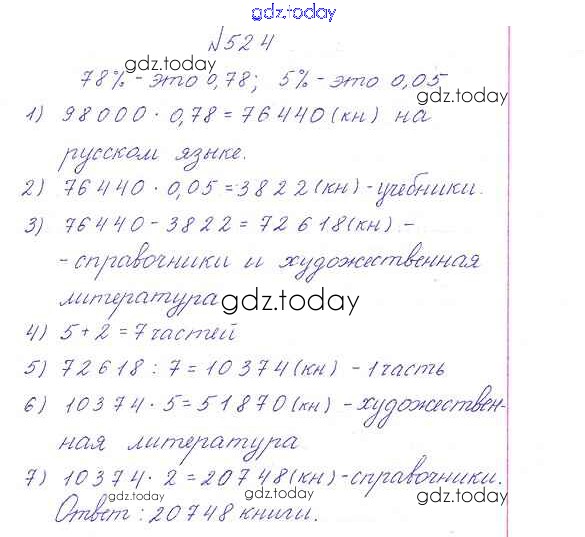 gdz.today
№524
gdz.today
78% - это 0,78; 5% - это 0,05
gdz.today
1) 98000 · 0,78 = 76440 (кн) на
русском языке.
2) 76440 · 0,05 = 3822 (кн) - учебники.
3) 76440 - 3822 = 72618 (кн) -
- справочники и художественная
литература
gdz.today
4) 5 + 2 = 7 частей
5) 72618 : 7 = 10374 (кн) - 1 часть
6) 10374 · 5 = 51870 (кн) - художествен-
ная литература
7) 10374 · 2 = 20748 (кн) - справочники.
gdz.today gdz.today gdz.today
Ответ: 20748 книги.